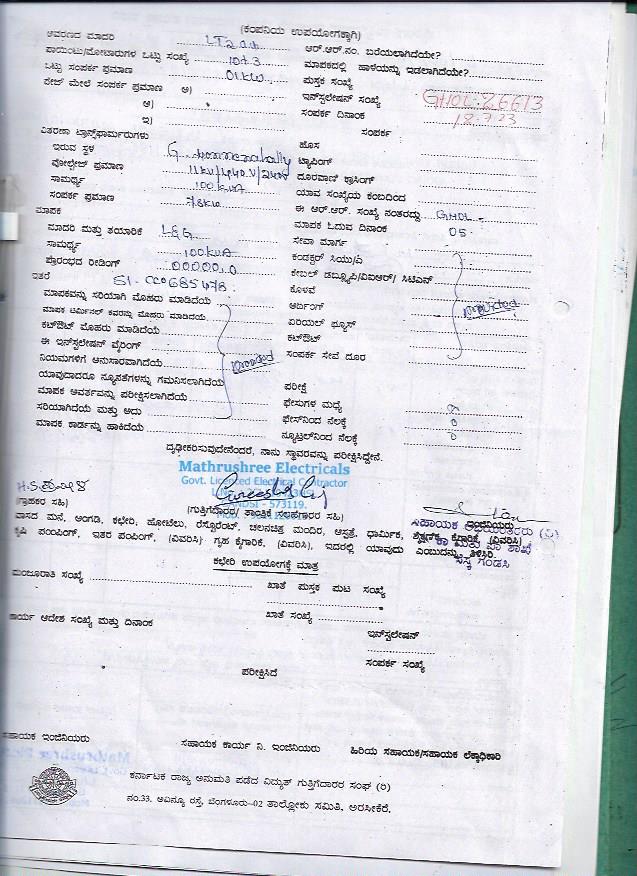 (ಕಂಪನಿಯ ಉಪಯೋಗಕ್ಕಾಗಿ)
ಆವರಣದ ಮಾದರಿ LT2
ಆರ್.ಆರ್.ನಂ. ಬರೆಯಲಾಗಿದೆಯೇ?
ಪಾಯಿಂಟು/ಮೋಟಾರುಗಳ ಒಟ್ಟು ಸಂಖ್ಯೆ 10+3
ಮಾಪಕದಲ್ಲಿ ಹಾಳೆಯನ್ನು ಇಡಲಾಗಿದೆಯೇ?
ಒಟ್ಟು ಸಂಪರ್ಕ ಪ್ರಮಾಣ 01 KW
ಪುಸ್ತಕ ಸಂಖ್ಯೆ
ಪೇಜ್ ಮೇಲೆ ಸಂಪರ್ಕ ಪ್ರಮಾಣ ಅ)
ಇನ್‌ಸ್ಟಲೇಷನ್ ಸಂಖ್ಯೆ GHOL-26613
ಆ)
ಸಂಪರ್ಕ ದಿನಾಂಕ 18.7.23
ಇ)
ಸಂಪರ್ಕ
ವಿತರಣಾ ಟ್ರಾನ್ಸ್‌ಫಾರ್ಮರುಗಳು
ಹೊಸ
ಇರುವ ಸ್ಥಳ
ಟ್ಯಾಪಿಂಗ್
ವೋಲ್ಟೇಜ್ ಪ್ರಮಾಣ 11KV/440V/240V
ದೂರವಾಣಿ ಕ್ರಾಸಿಂಗ್
ಸಾಮರ್ಥ್ಯ 100 KVA
ಯಾವ ಸಂಖ್ಯೆಯ ಕಂಬದಿಂದ
ಸಂಪರ್ಕ ಪ್ರಮಾಣ 78KW
ಈ ಆರ್.ಆರ್. ಸಂಖ್ಯೆ ನಂತರದ್ದು GHOL -
ಮಾಪಕ
ಮಾಪಕ ಓದುವ ದಿನಾಂಕ 05
ಮಾದರಿ ಮತ್ತು ತಯಾರಿಕೆ L&G
ಸೇವಾ ಮಾರ್ಗ
ಸಾಮರ್ಥ್ಯ 100KVA
ಕಂಡಕ್ಟರ್ ಸಿಯು/ಎ
ಪ್ರಾರಂಭದ ರೀಡಿಂಗ್ 00000.0
ಕೇಬಲ್ ಡಬ್ಲ್ಯೂಪಿ/ವಿಐಆರ್/ ಸಿಟಿಎಸ್
ಇತರೆ Sl - CC0685478
ಕೊಳವೆ
ಮಾಪಕವನ್ನು ಸರಿಯಾಗಿ ಮೊಹರು ಮಾಡಿದೆಯೆ
ಅರ್ದಿಂಗ್
ಮಾಪಕ ಟರ್ಮಿನಲ್ ಕವರನ್ನು ಮೊಹರು ಮಾಡಿದೆಯೆ
Provided
ಏರಿಯಲ್ ಫ್ಯೂಸ್
ಕಟ್‌ಔಟ್ ಮೊಹರು ಮಾಡಿದೆಯೆ
ಕಟ್‌ಔಟ್
ಈ ಇನ್‌ಸ್ಟಲೇಷನ್ ವೈರಿಂಗ್
ಸಂಪರ್ಕ ಸೇವೆ ದೂರ
ನಿಯಮಗಳಿಗೆ ಅನುಸಾರವಾಗಿದೆಯೆ
Provided
ಯಾವುದಾದರೂ ನ್ಯೂನತೆಗಳನ್ನು ಗಮನಿಸಲಾಗಿದೆಯೆ
ಪರೀಕ್ಷೆ
ಮಾಪಕ ಆವರ್ತವನ್ನು ಪರೀಕ್ಷಿಸಲಾಗಿದೆಯೆ
ಫೇಸುಗಳ ಮಧ್ಯೆ
ಸರಿಯಾಗಿದೆಯೆ ಮತ್ತು ಅದು
ಫೇಸ್‌ನಿಂದ ನೆಲಕ್ಕೆ 0
ಮಾಪಕ ಕಾರ್ಡನ್ನು ಹಾಕಿದೆಯೆ
ನ್ಯೂಟ್ರಲ್‌ನಿಂದ ನೆಲಕ್ಕೆ 0
ದೃಢೀಕರಿಸುವುದೇನೆಂದರೆ, ನಾನು ಸ್ಥಾವರವನ್ನು ಪರೀಕ್ಷಿಸಿದ್ದೇನೆ.
Mathrushree Electricals
Govt. Licenced Electrical Contractor
GANDSI - 573119.
(ಗ್ರಾಹಕರ ಸಹಿ)
(ಗುತ್ತಿಗೆದಾರರ/ ತಾಂತ್ರಿಕ ಸಲಹೆಗಾರರ ಸಹಿ)
ವಾಸದ ಮನೆ, ಅಂಗಡಿ, ಕಛೇರಿ, ಹೋಟೆಲು, ರೆಸ್ಟೋರೆಂಟ್, ಚಲನಚಿತ್ರ ಮಂದಿರ, ಆಸ್ಪತ್ರೆ, ಧಾರ್ಮಿಕ, ಶೈಕ್ಷಣಿಕ, ಕೈಗಾರಿಕೆ, (ವಿವರಿಸಿ)
ಕೃಷಿ ಪಂಪಿಂಗ್, ಇತರ ಪಂಪಿಂಗ್, (ವಿವರಿಸಿ) ಗೃಹ ಕೈಗಾರಿಕೆ, (ವಿವರಿಸಿ), ಇದರಲ್ಲಿ ಯಾವುದು ಎಂಬುದನ್ನು ತಿಳಿಸಿರಿ.
ಕಛೇರಿ ಉಪಯೋಗಕ್ಕೆ ಮಾತ್ರ
ಮಂಜೂರಾತಿ ಸಂಖ್ಯೆ
ಖಾತೆ ಪುಸ್ತಕ ಪುಟ ಸಂಖ್ಯೆ
ಕಾರ್ಯ ಆದೇಶ ಸಂಖ್ಯೆ ಮತ್ತು ದಿನಾಂಕ
ಖಾತೆ ಸಂಖ್ಯೆ
ಇನ್‌ಸ್ಟಲೇಷನ್
ಸಂಪರ್ಕ ಸಂಖ್ಯೆ
ಪರೀಕ್ಷಿಸಿದೆ
ಸಹಾಯಕ ಇಂಜಿನಿಯರು
ಸಹಾಯಕ ಕಾರ್ಯ ನಿ. ಇಂಜಿನಿಯರು
ಹಿರಿಯ ಸಹಾಯಕ/ಸಹಾಯಕ ಲೆಕ್ಕಾಧಿಕಾರಿ
ಕರ್ನಾಟಕ ರಾಜ್ಯ ಅನುಮತಿ ಪಡೆದ ವಿದ್ಯುತ್ ಗುತ್ತಿಗೆದಾರರ ಸಂಘ (ರಿ)
ನಂ.33, ಅವಿನ್ಯೂ ರಸ್ತೆ, ಬೆಂಗಳೂರು-02 ತಾಲ್ಲೋಕು ಸಮಿತಿ, ಅರಸೀಕೆರೆ.